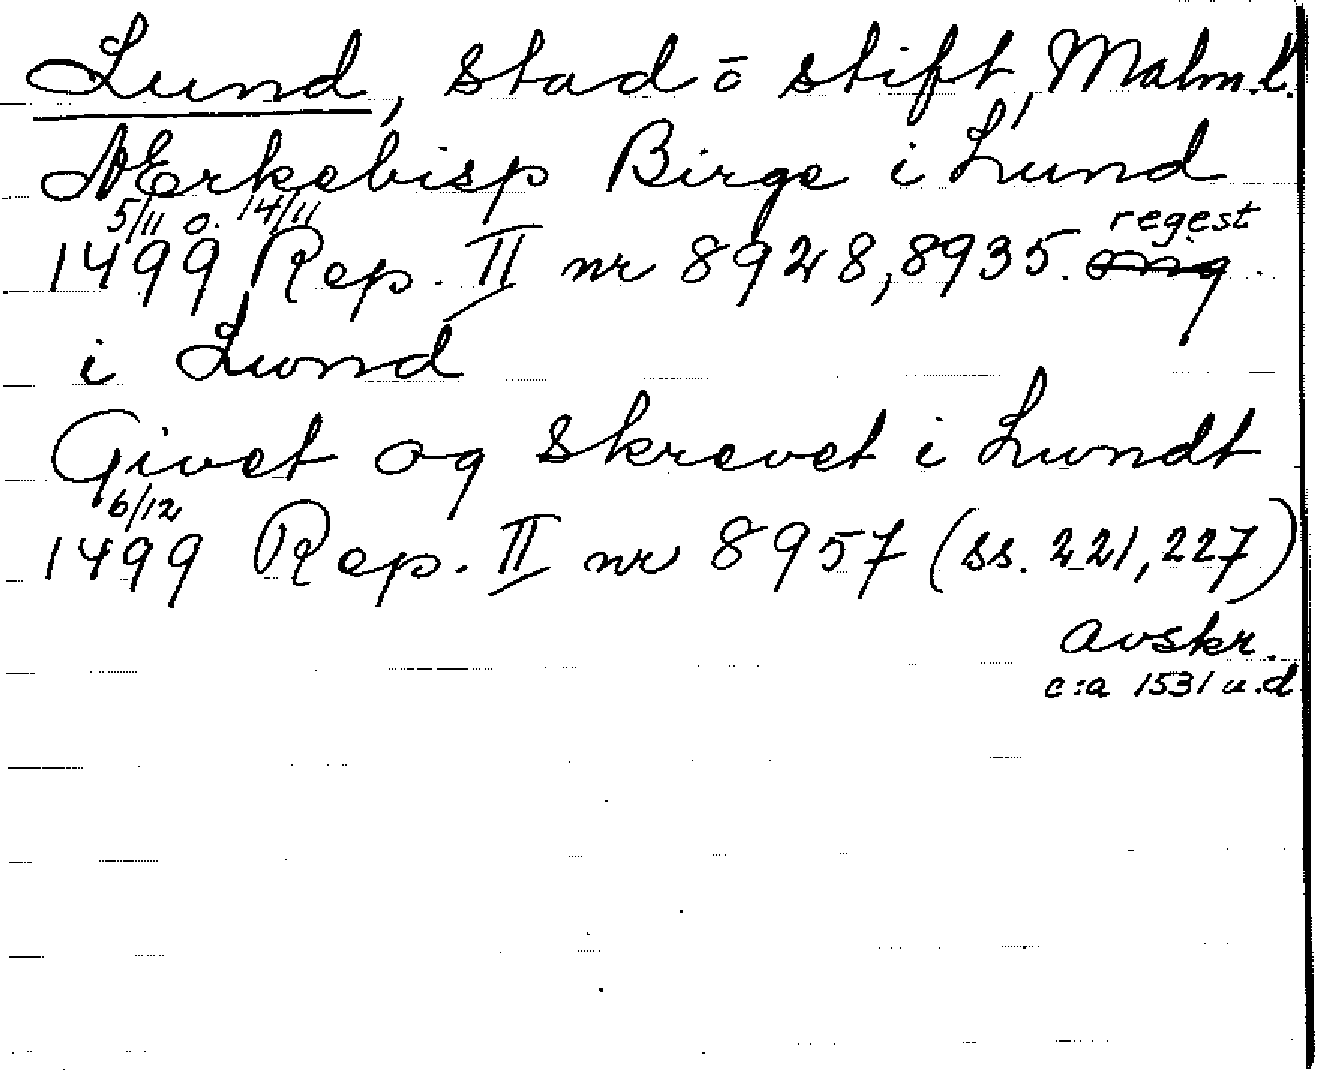 Lund, stad ō stift, Malm.l.
Ærkebisp Birge i Lund
5/11 o. 14/11 regest
1499, Rep. II nr 8928, 8935. orig
i Lund
Givet og skrevet i Lundt
6/12
1499 Rep. II nr 8957 (ss. 221, 227)
avskr.
c:a 1531 u.d